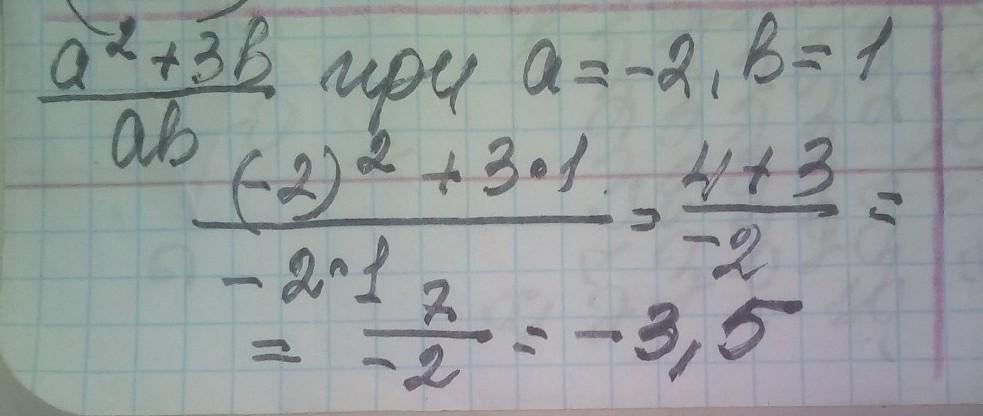 a² + 3b / ab при a = -2, b = 1
(-2)² + 3·1 / -2·1 = 4 + 3 / -2 =
= 7 / -2 = -3,5